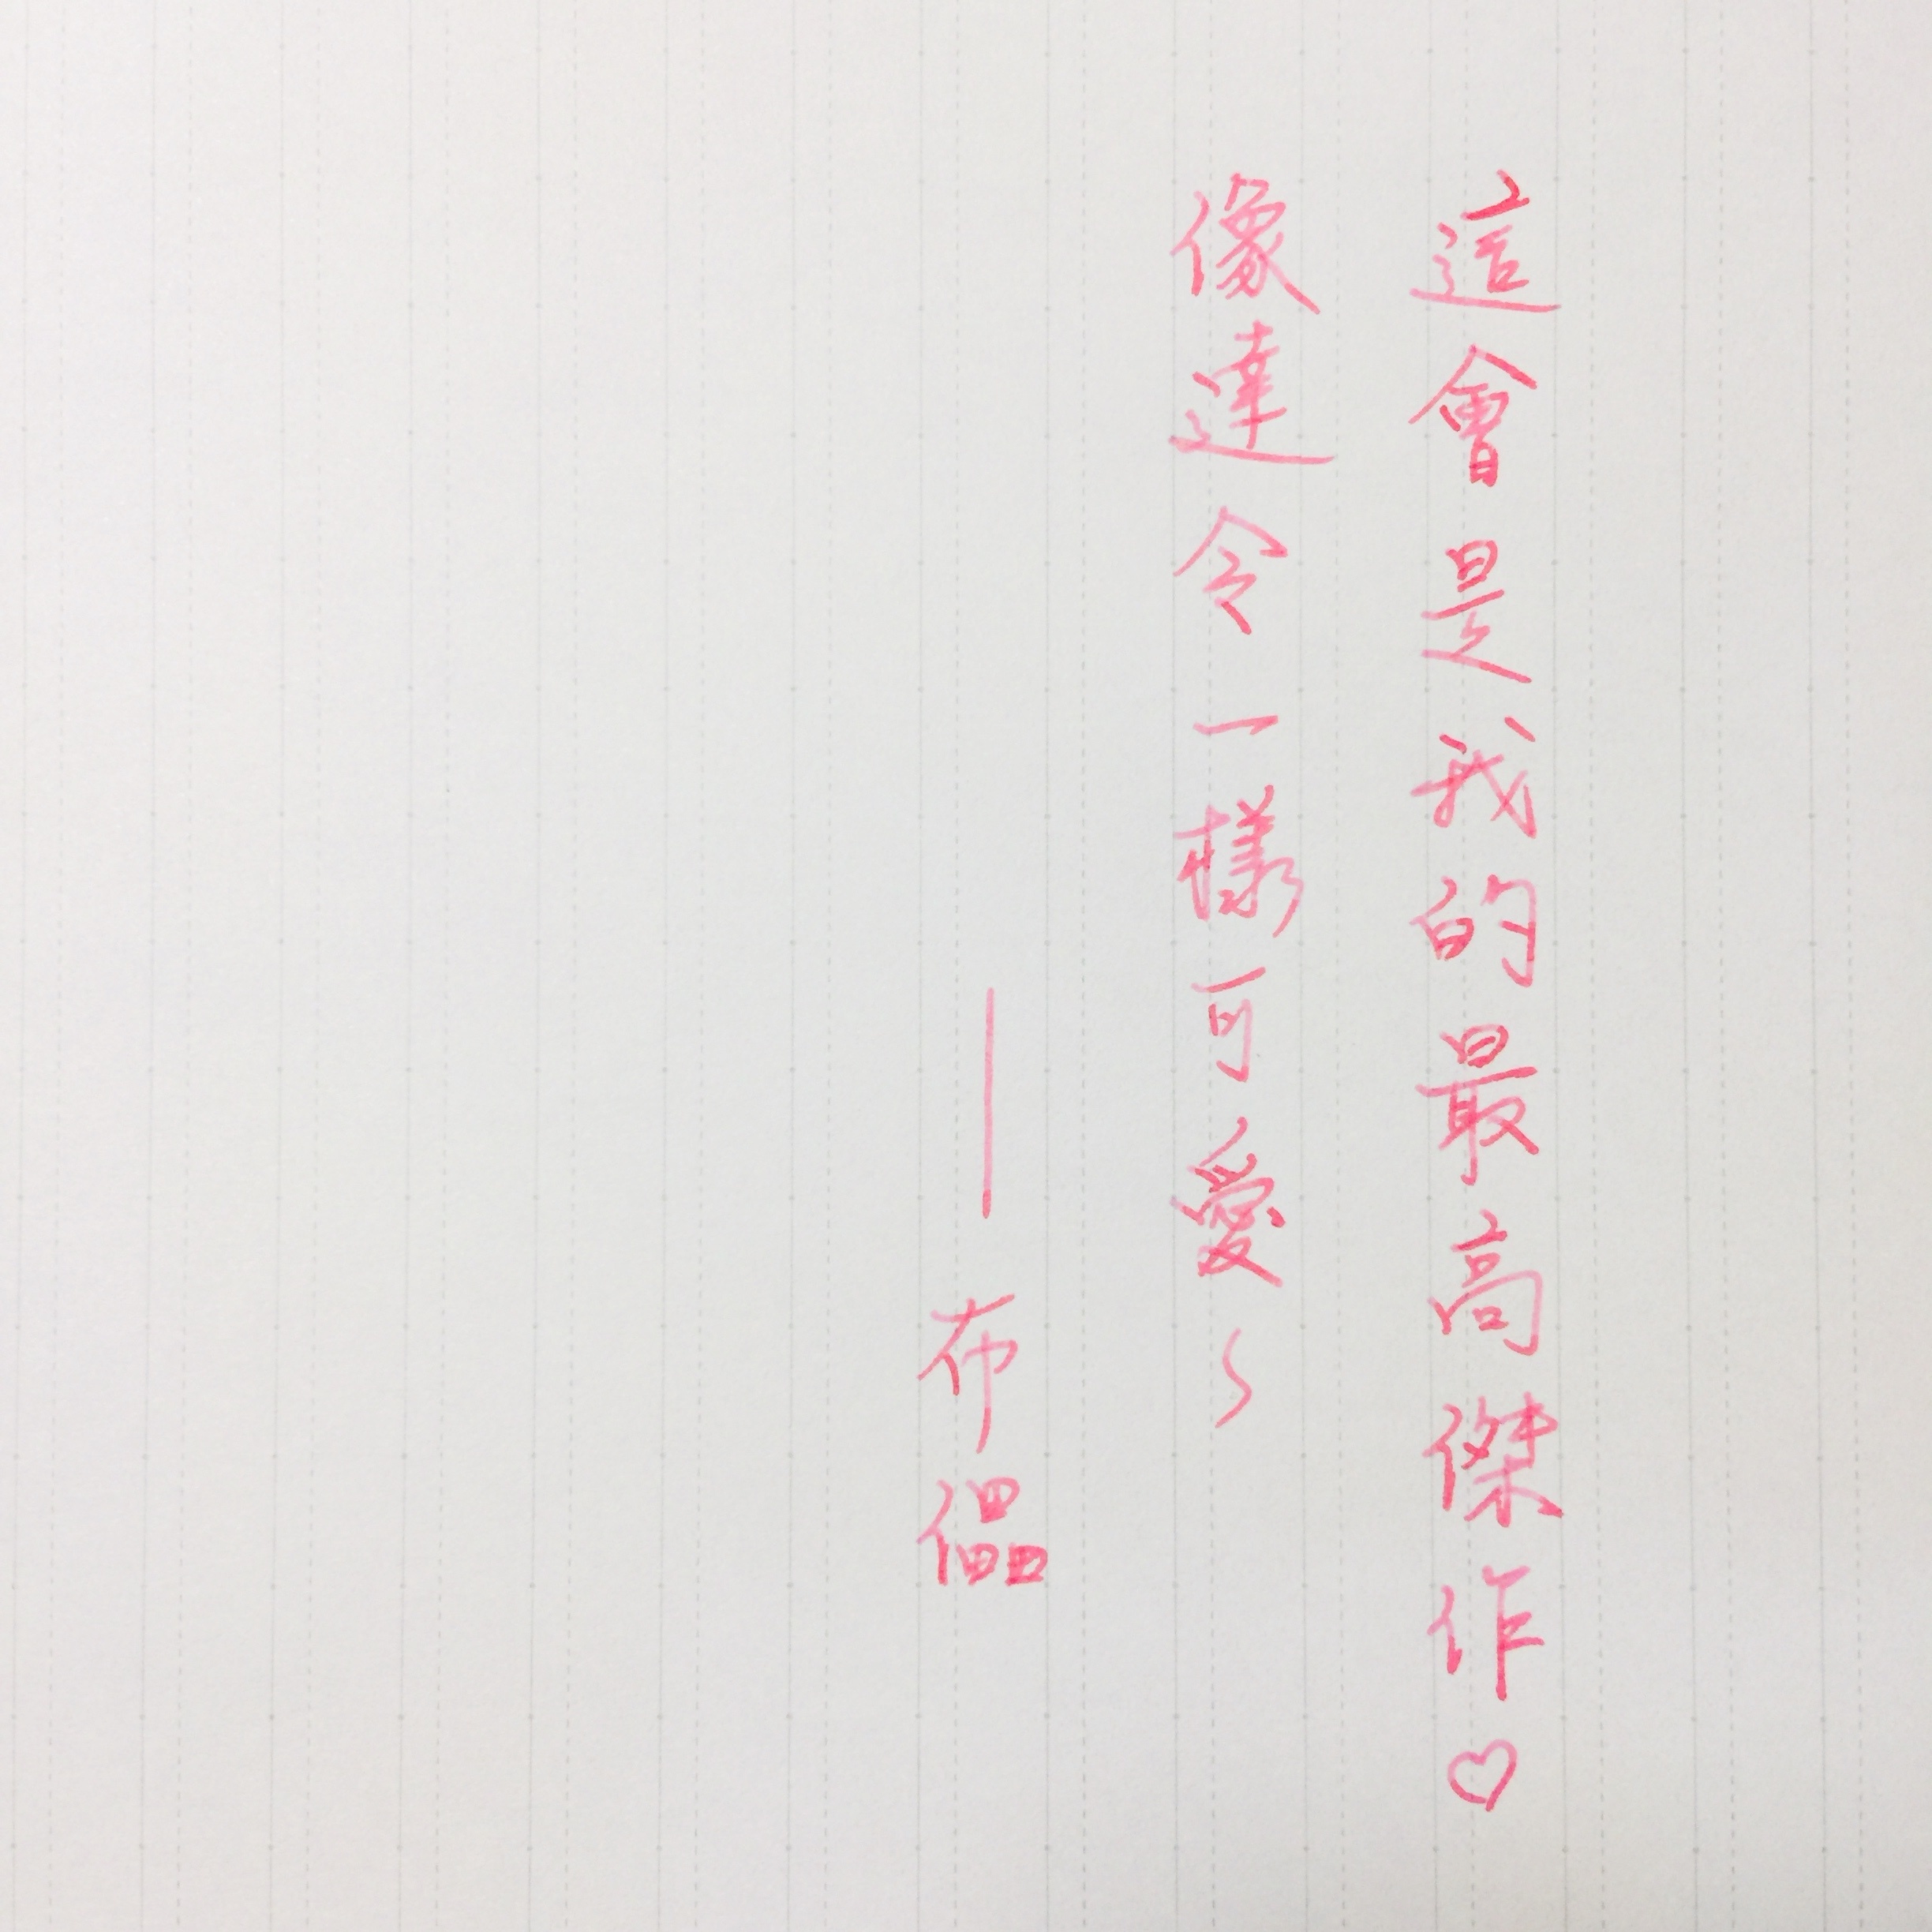 這會是我的最高傑作♡
像達令一樣可愛～
——布儡